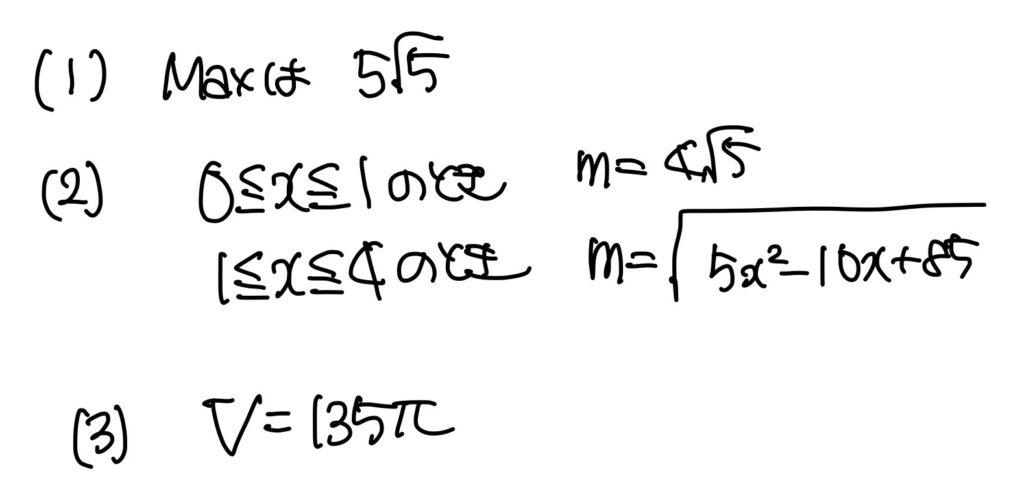 (1) Maxは 5√5
(2) 0≦x≦1のとき m=4√5
1≦x≦4のとき m=√(5x²-10x+85)
(3) V=135π